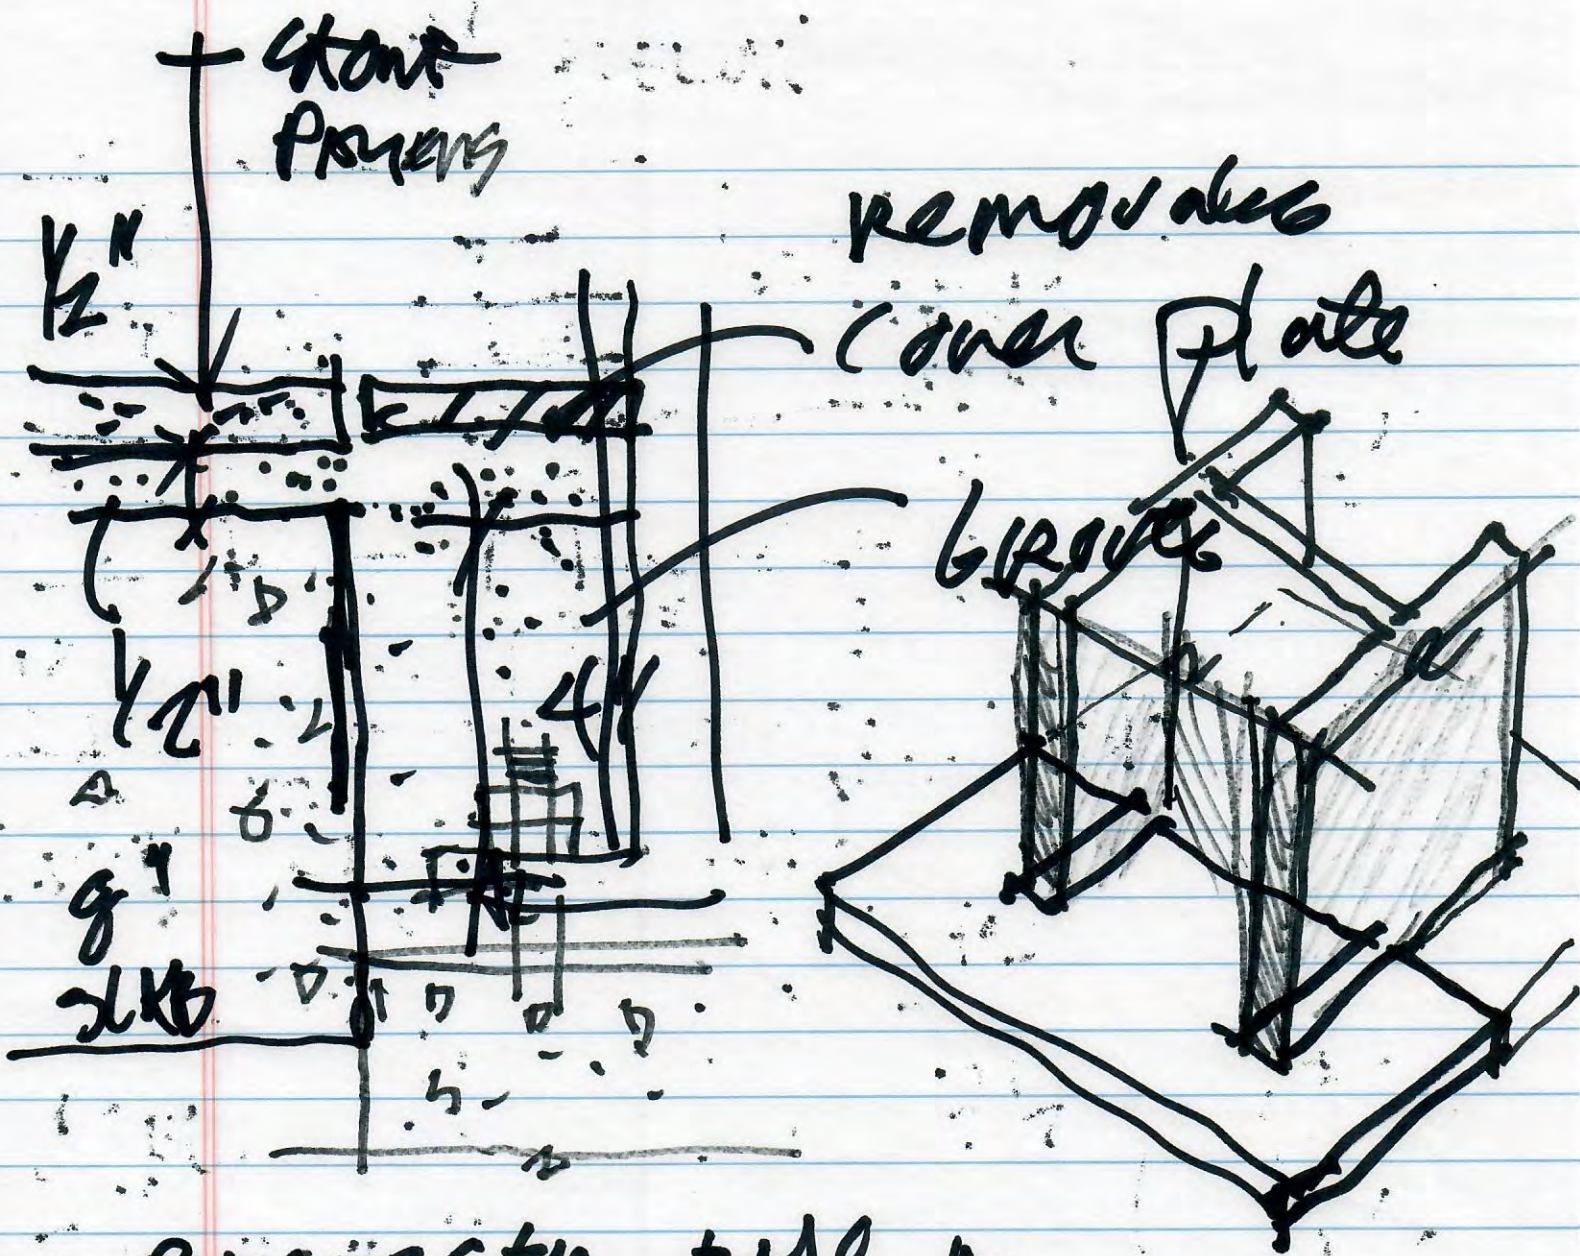 STONE
PAVERS
1/2"
Removable
Cover Plate
GROUT
1/2"
4"
8"
SLAB